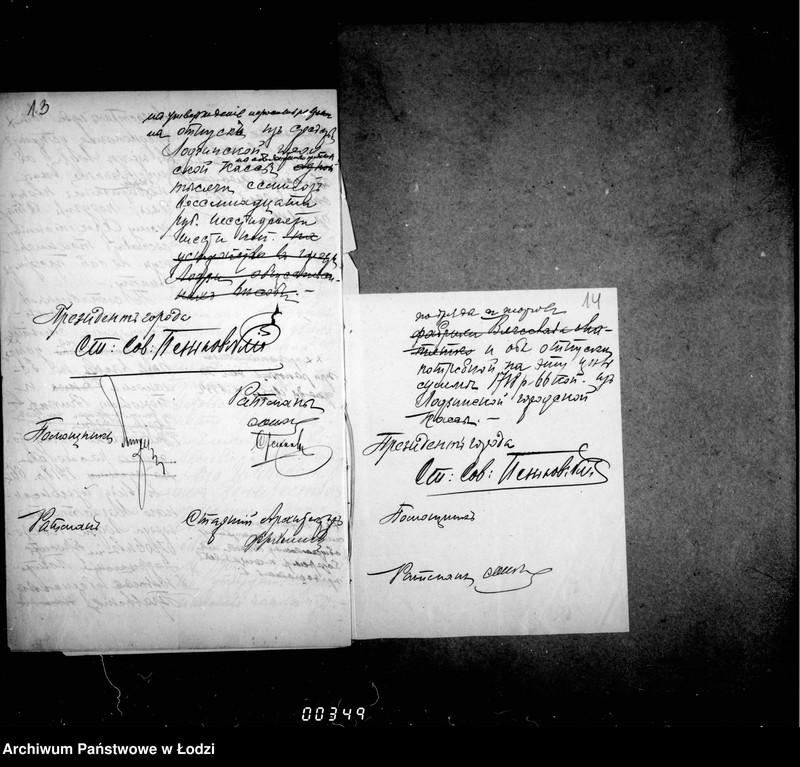 13
на утверждение
на отпускъ изъ средствъ
Лодзинской город
ской Кассы одной
тысячи семисотъ
восемнадцати
руб. шестидесяти
шести коп. на
устройство въ городѣ
Лодзи
Президентъ города
Ст: Сов: Пеньковскій
Ратманъ
Помощникъ
Ратманъ
Старшій Архитекторъ
14
подряда
фабрики
и объ отпускѣ
потребной на эту цѣль
суммы 1718 р. 66 коп. изъ
Лодзинской городской
Кассы. -
Президентъ города
Ст: Сов: Пеньковскій
Помощникъ
Ратманъ
00349
Archiwum Państwowe w Łodzi